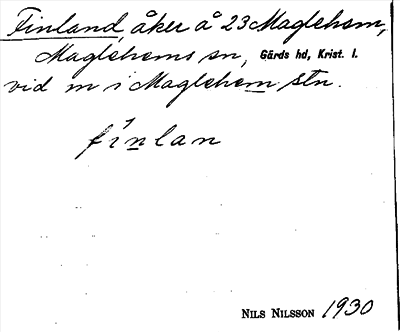 Finland, åker å 23 Maglehem,
Maglehems sn, Gärds hd, Krist. l.
vid m i Maglehem stn.
fínlan
NILS NILSSON 1930